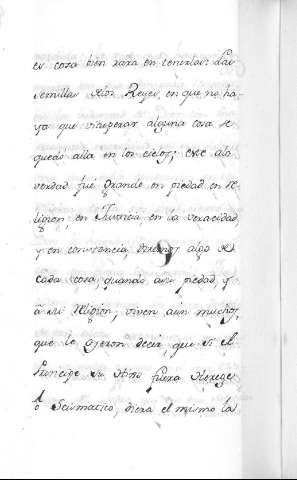 es cosa bien rara en
semillas Reyes, en que no ha-
ya que vituperar alguna cosa se
quedó alla en los cielos; este ala
verdad fué grande en piedad en re-
ligion, en Justicia en la veracidad
y en constancia algo de
cada cosa, quando a su piedad, y
â su Religion, viven aun muchos,
que le oyeron decir, que si el
Principe su Hijo fuera Herege
ô Scismatico, diera el mismo la